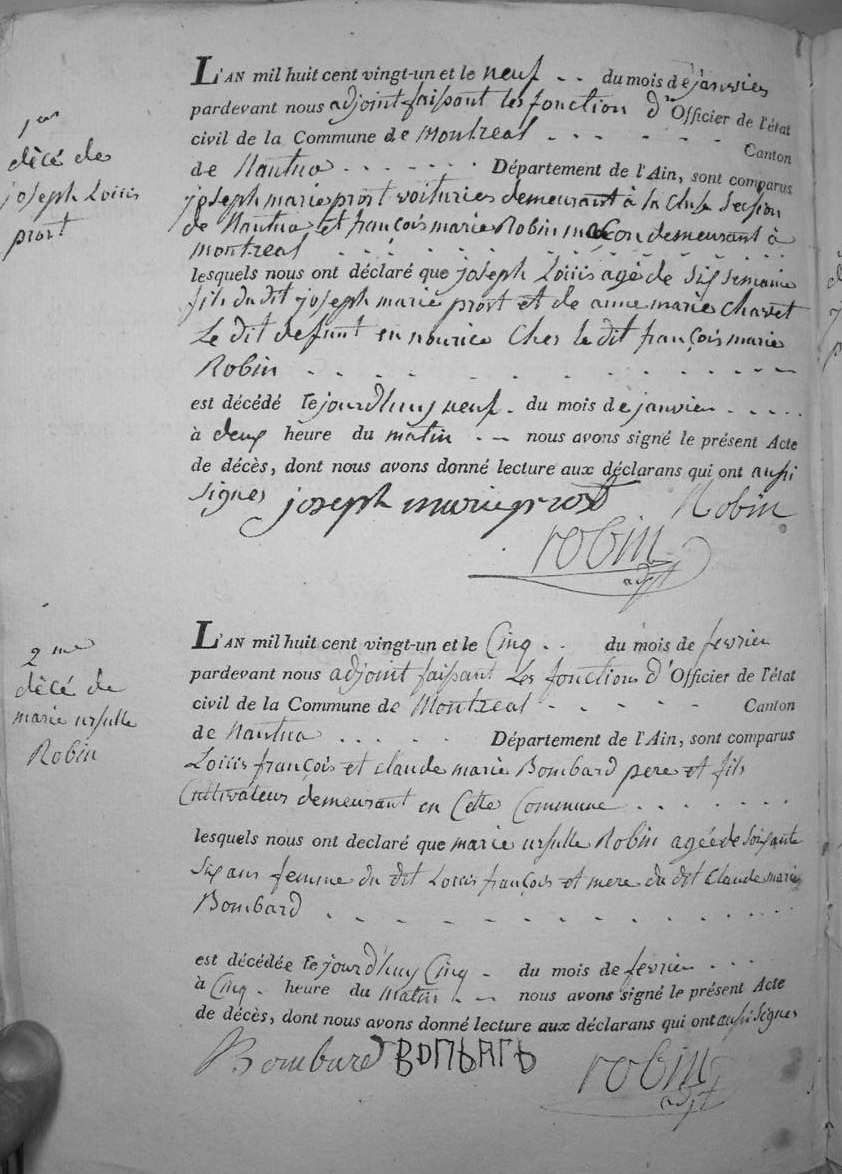 1er
décé de
joseph Louis
prost
L'AN mil huit cent vingt-un et le neuf . . du mois de janvier
pardevant nous adjoint faisant les fonction d'Officier de l'état
civil de la Commune de Montreal . . . . . . Canton
de Nantua . . . . . . . Département de l'Ain, sont comparus
joseph marie prost voiturier demeurant à la Section
de Nantua et françois marie Robin maçon demeurant à
montreal
lesquels nous ont déclaré que joseph Louis agé de six semaine
fils du dit joseph marie prost et de anne marie Charvet
Le dit defunt en nourice Cher le dit françois marie
Robin
est décédé cejourd'huy neuf . du mois de janvier . . . . .
à deux heure du matin . — nous avons signé le présent Acte
de décès, dont nous avons donné lecture aux déclarans qui ont aussi
signer joseph marie prost Robin
robin
adjt
2me
décé de
marie ursulle
Robin
L'AN mil huit cent vingt-un et le Cinq . . du mois de fevrier
pardevant nous adjoint faisant Les fonctions d'Officier de l'état
civil de la Commune de Montreal . . . . . Canton
de Nantua . . . . . Département de l'Ain, sont comparus
Louis françois et claude marie Bombard pere et fils
Cultivateurs demeurant en Cette Commune . . . . . . .
lesquels nous ont declaré que marie ursulle Robin agée de soixante
six ans femme du dit Louis françois et mere du dit Claude marie
Bombard
est décédée cejourd'huy Cinq . du mois de fevrier . . .
à Cinq . heure du matin . — nous avons signé le présent Acte
de décès, dont nous avons donné lecture aux déclarans qui ont aussi signer
Bombard BOMBARD robin
adjt